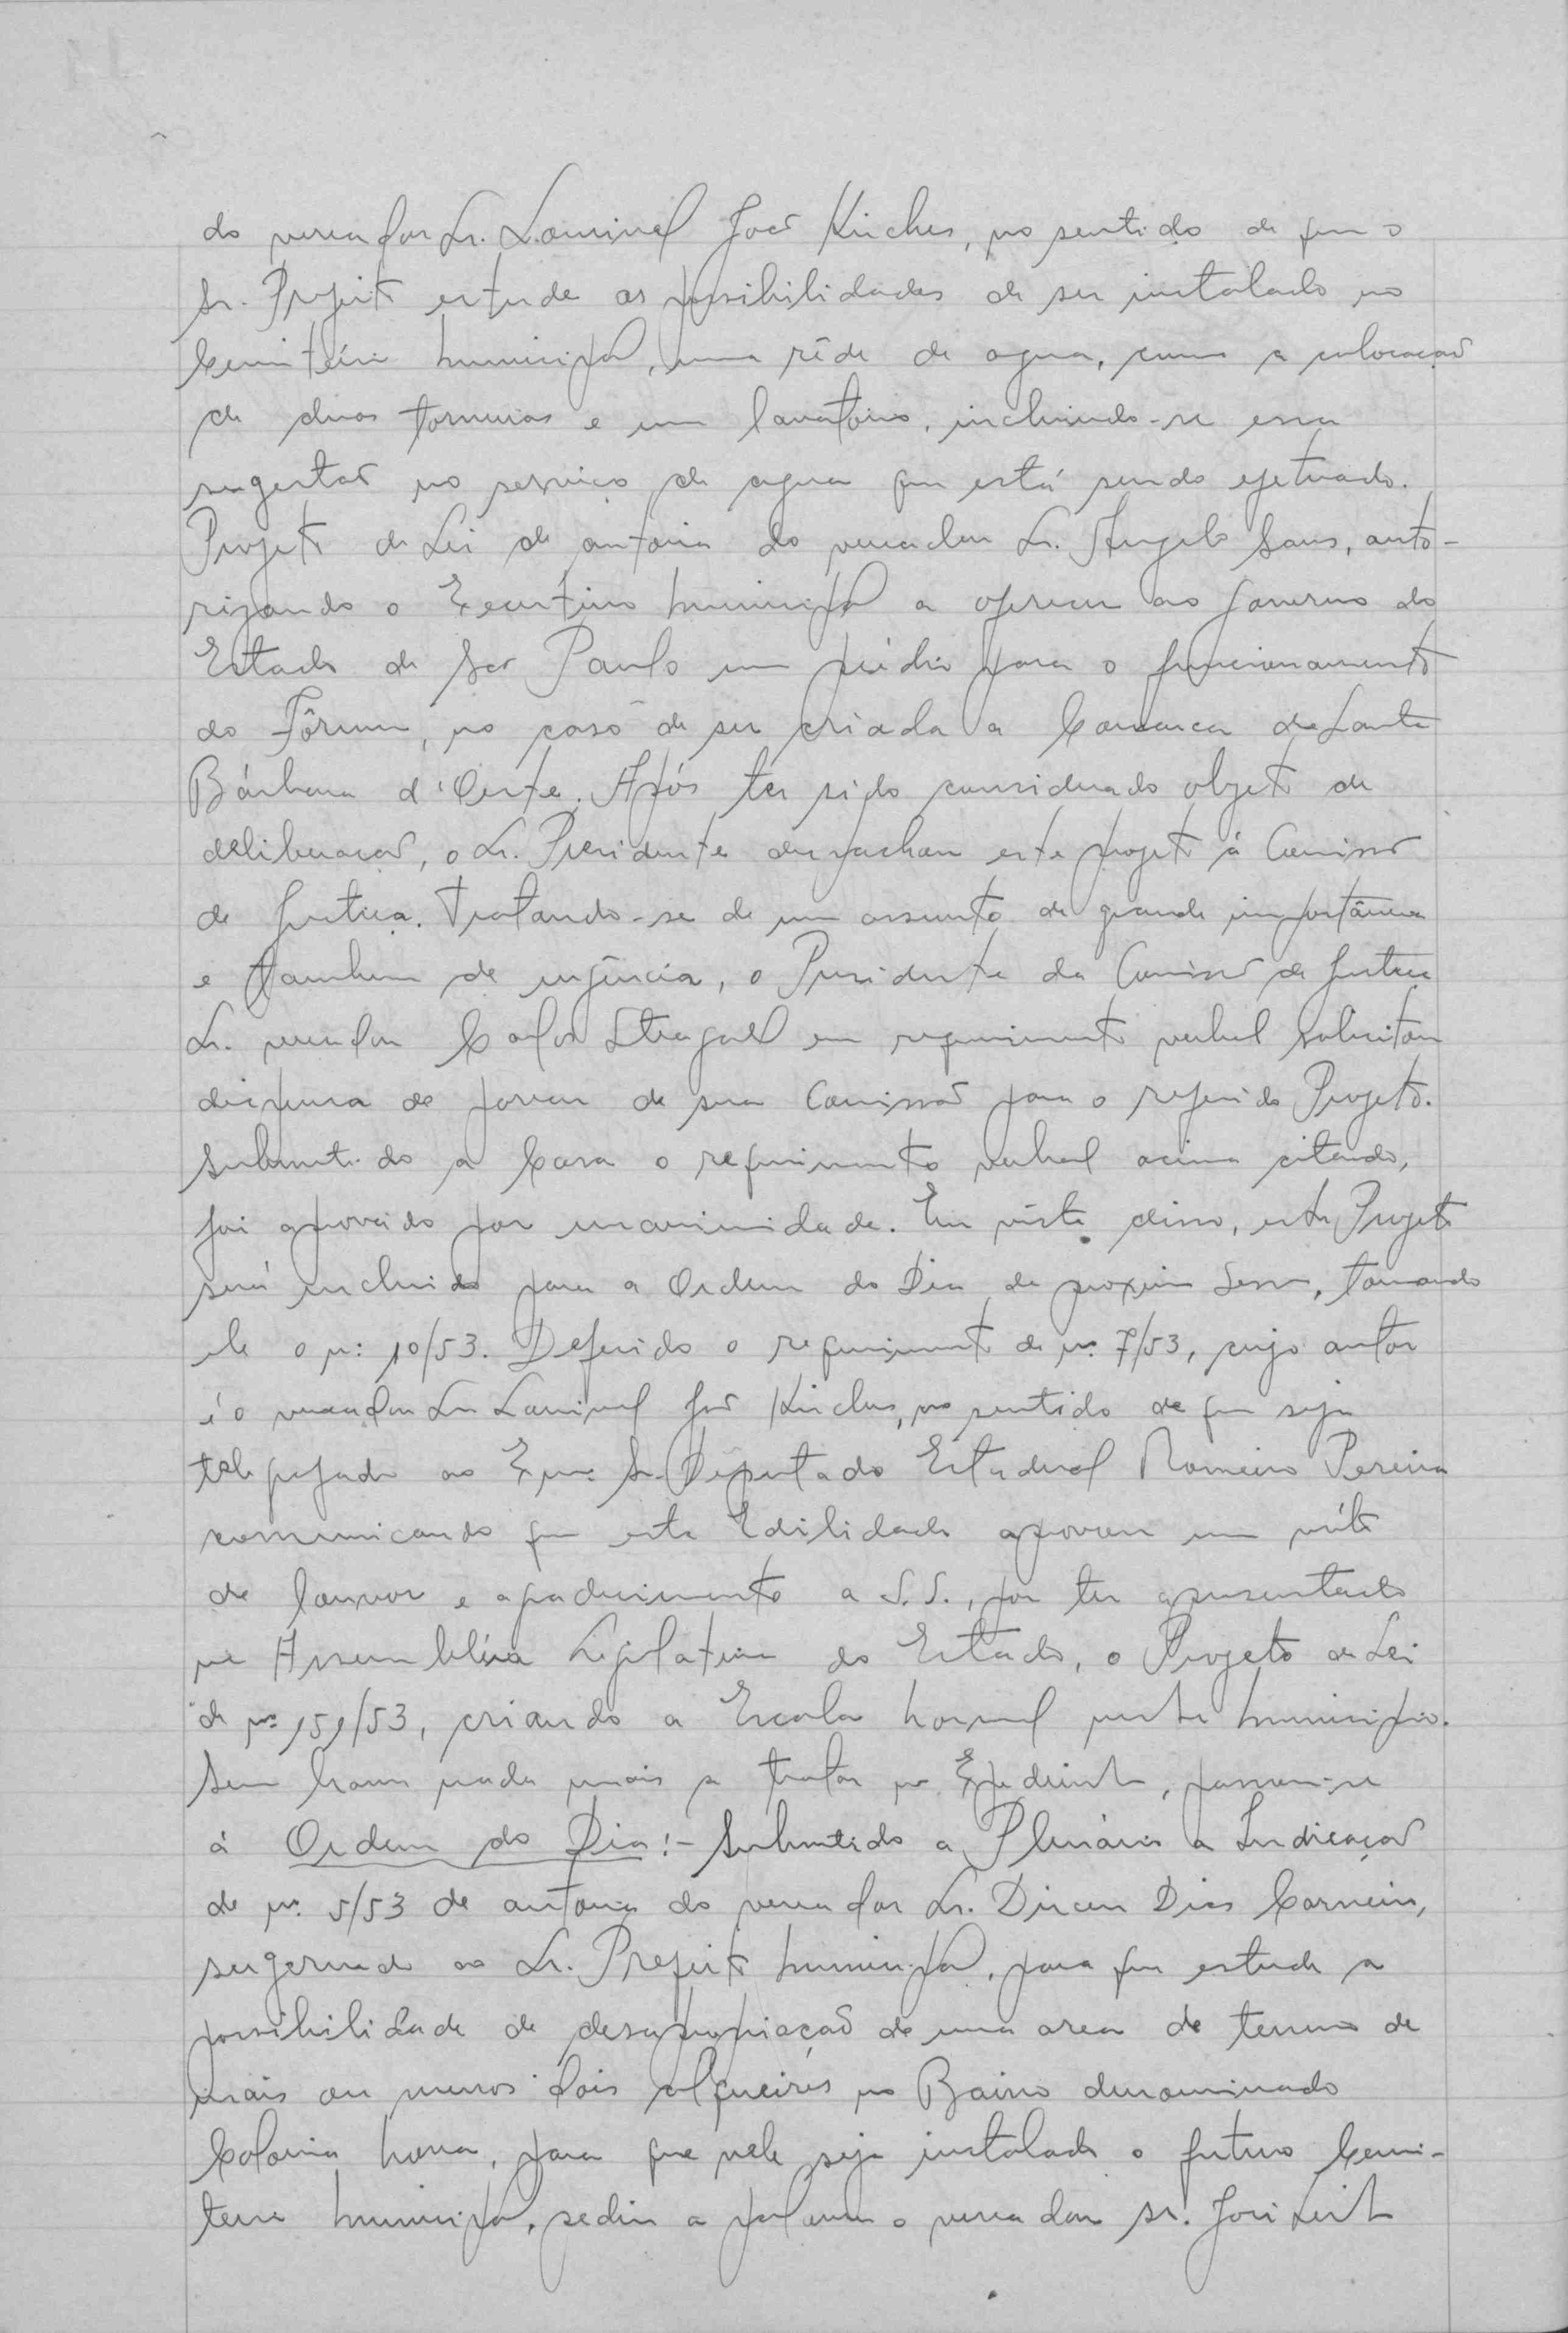 do vereador Sr. Lourival João Kirches, no sentido de que o
Sr. Prefeito estude as possibilidades de ser instalado no
Cemitério Municipal, uma rêde de agua, com a colocação
de duas torneiras e um lavatorio, incluindo-se essa
sugestão no serviço de agua que está sendo efetuado.
Projeto de Lei de autoria do vereador Sr. Angelo Sans, auto-
rizando o Executivo Municipal a oferecer ao Governo do
Estado de São Paulo um prédio para o funcionamento
do Fôrum, no caso de ser criada a Comarca de Santa
Bárbara d'Oeste. Após ter sido considerado objeto de
deliberação, o Sr. Presidente despachou este projeto à Comissão
de Justiça. Tratando-se de um assunto de grande importância
e tambem de urgência, o Presidente da Comissão de Justiça
Sr. vereador Carlos Steagall em requerimento verbal solicitou
dispensa de parecer de sua Comissão para o referido Projeto.
Submetido a Casa o requerimento verbal acima citado,
foi aprovado por unanimidade. Em vista disso, este Projeto
será incluido para a Ordem do Dia da proxima Sessão, tomando
ele o nº 10/53. Deferido o requerimento de nº 7/53, cujo autor
é o vereador Sr. Lourival João Kirches, no sentido de que seja
telegrafado ao Exmo. Sr. Deputado Estadual Romeiro Pereira
comunicando que esta Edilidade aprovou um vóto
de louvor e agradecimento a S.S., por ter apresentado
na Assembléia Legislativa do Estado, o Projeto de Lei
de nº 151/53, criando a Escola Normal neste Municipio.
Sem haver nada mais a tratar no Expediente, passou-se
à Ordem do Dia:- Submetido a Plenário a Indicação
de nº 5/53 de autoria do vereador Sr. Dirceu Dias Carneiro,
sugerindo ao Sr. Prefeito Municipal, para que estude a
possibilidade de desapropriação de uma area de terreno de
mais ou menos dois alqueires no Bairro denominado
Colonia Nova, para que nele seja instalado o futuro Cemi-
terio Municipal, pediu a palavra o vereador Sr. José Leite